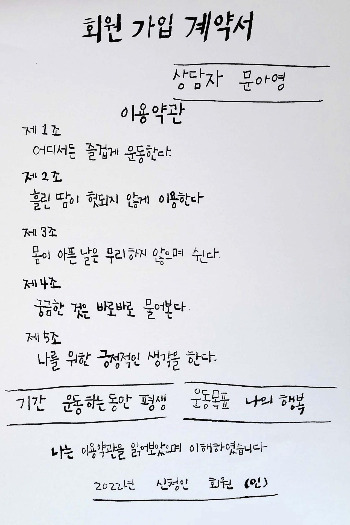 회원 가입 계약서
상담자 문아영
이용약관
제 1조
어디서든 즐겁게 운동한다.
제 2조
흘린 땀이 헛되지 않게 이용한다
제 3조
몸이 아픈 날은 무리하지 않으며 쉰다.
제 4조
궁금한 것은 바로바로 물어본다.
제 5조
나를 위한 긍정적인 생각을 한다.
기간 운동하는동안 평생 운동목표 나의 행복
나는 이용약관을 읽어보았으며 이해하였습니다
2022년 신청인 회원 (인)